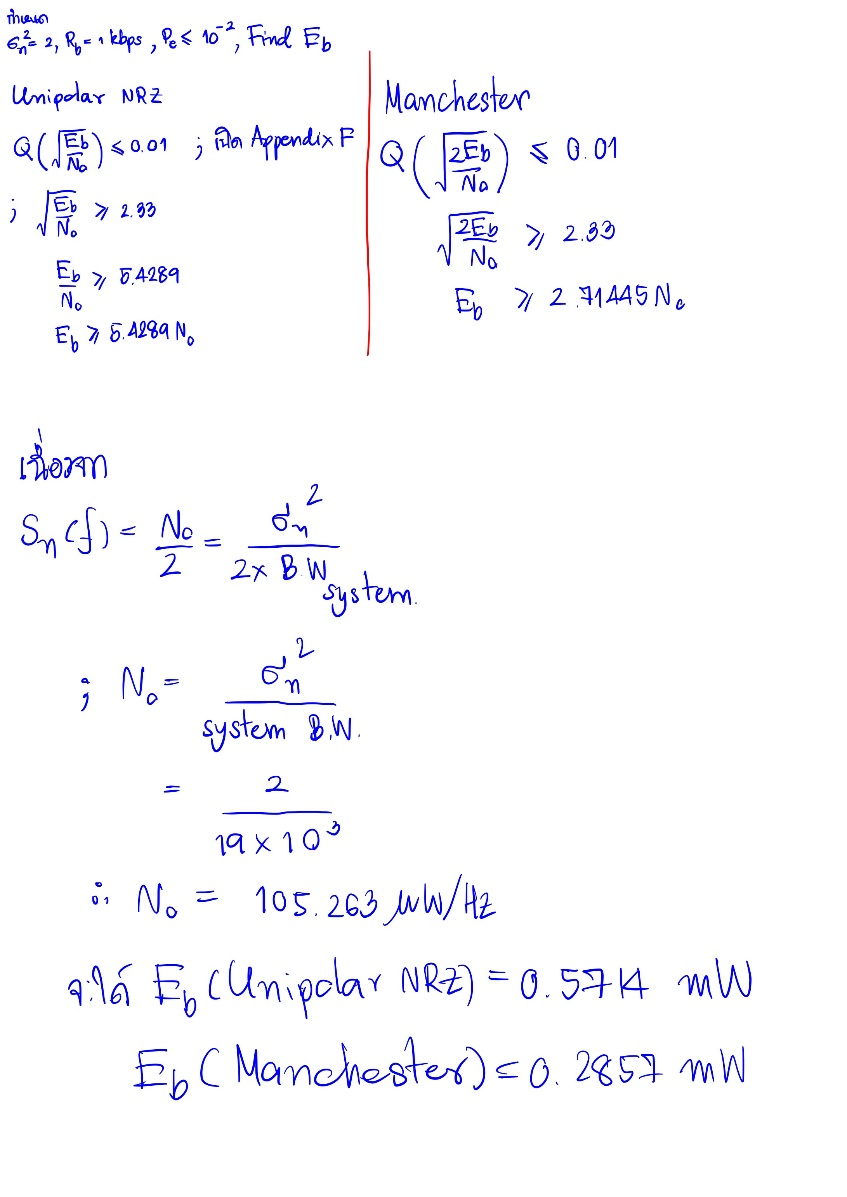 กำหนด
σn² = 2, Rb = 1 kbps, Pe ≤ 10⁻², Find Eb
Unipolar NRZ
Q(√(Eb/No)) ≤ 0.01 ; เปิด Appendix F
; √(Eb/No) ≥ 2.33
Eb/No ≥ 5.4289
Eb ≥ 5.4289 No
Manchester
Q(√(2Eb/No)) ≤ 0.01
√(2Eb/No) ≥ 2.33
Eb ≥ 2.71445 No
เนื่องจาก
Sn(f) = No/2 = σn²/(2× B.W system.)
; No = σn²/(system B.W.)
= 2/(19 × 10³)
∴ No = 105.263 μW/Hz
จะได้ Eb (Unipolar NRZ) = 0.5714 mW
Eb (Manchester) = 0.2857 mW